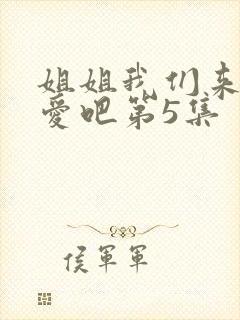 姐姐我们来
爱吧第5集
侯军军